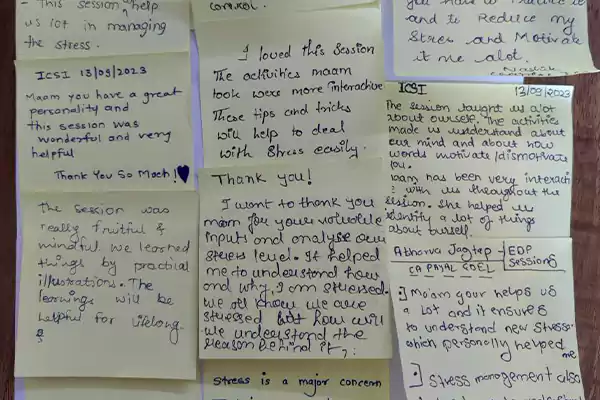 - This session help
us lot in managing
the stress.
ICSI 13/09/2023
Maam you have a great
personality and
this session was
wonderful and very
helpful
Thank You So Much!
The session was
really fruitful &
mindful. We learned
things by practial
illustrations. The
learnings will be
helpful for lifelong.
control.
I loved this session
The activities maam
took were more interactive
These tips and tricks
will help to deal
with stress easily.
Thank you!
I want to thank you
mam for your valuable
inputs and analyse our
stress level. It helped
me to understand how
and why I am stressed.
We all know we are
stressed but how will
we understand the
reason behind it,
Stress is a major concern
and to Reduce my
Stres and Motivate
it me alot.
ICSI 13/09/2023
The session taught us alot
about ourself. The activities
made us understand about
our mind and about how
words motivate/dismotivate
you.
maam has been very interacti
with us throughout the
session. She helped us
identify a lot of things
about ourself.
Atharva Jagtap EDP
Sessions
CA PAYAL GOEL
Ma'am your helps us
a lot and it ensures
to understand new stress
which personally helped
me
Stress management also